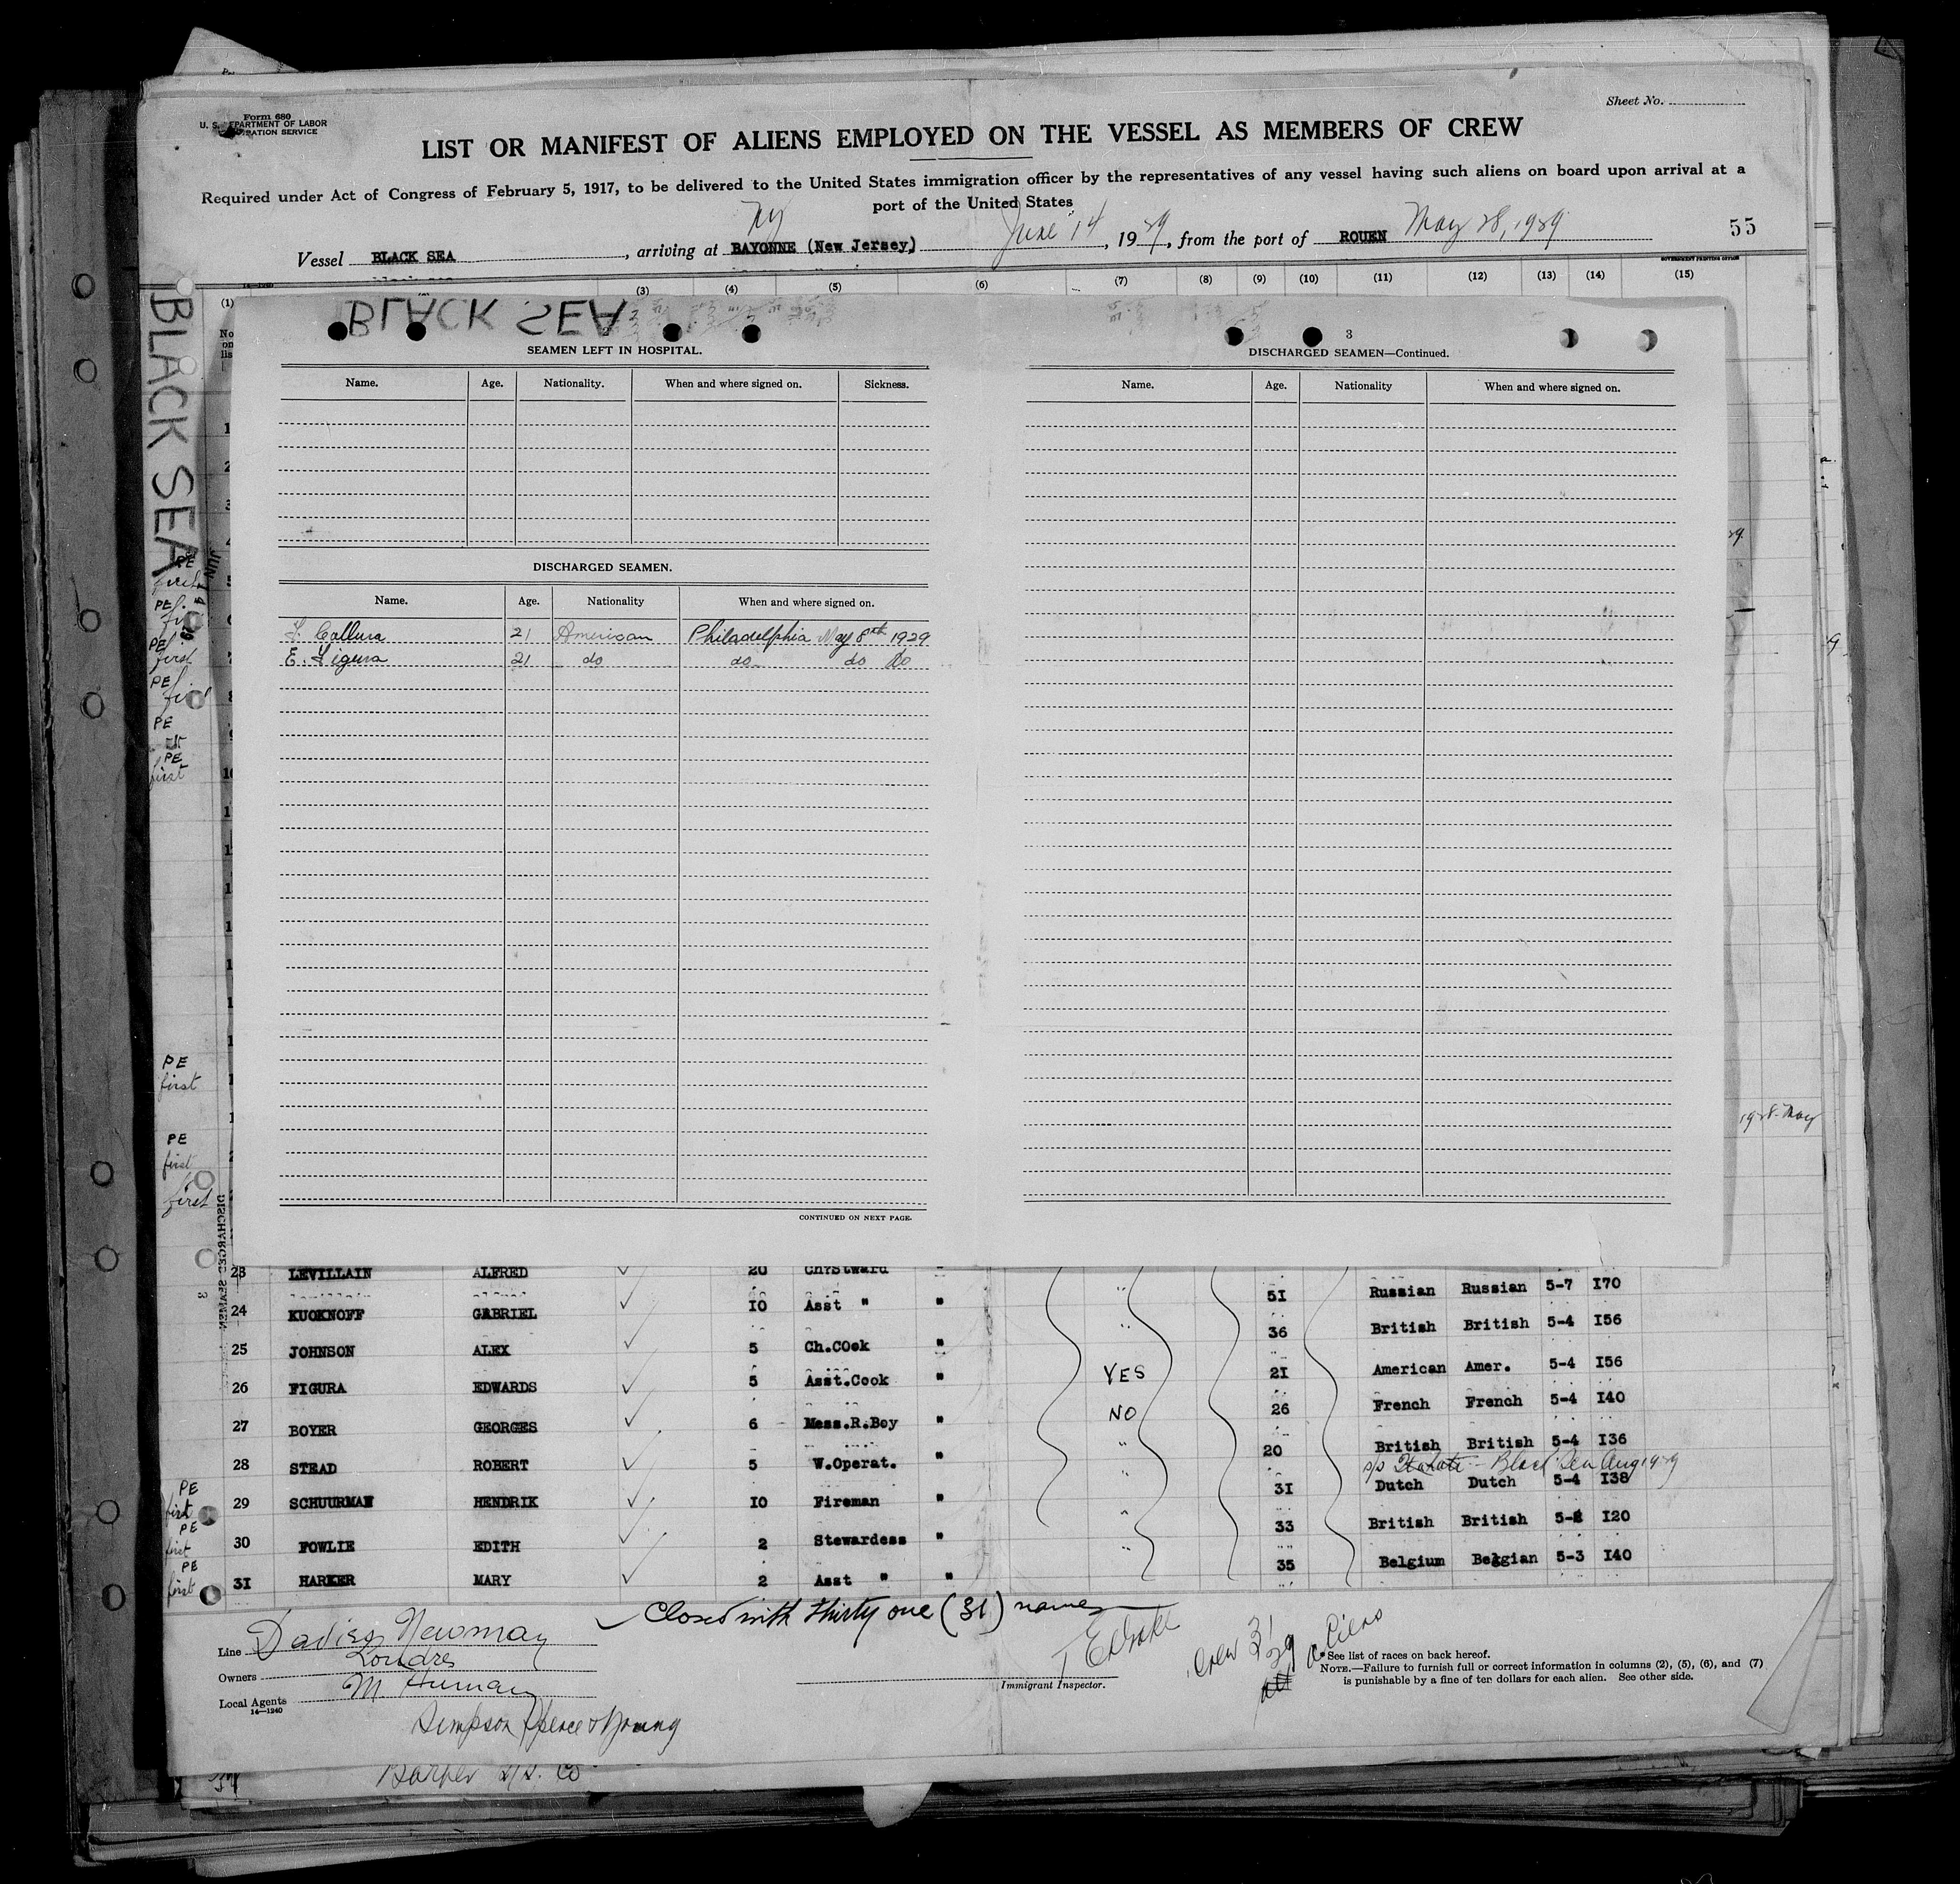 Form 680
U. S. DEPARTMENT OF LABOR
IMMIGRATION SERVICE
Sheet No.
LIST OR MANIFEST OF ALIENS EMPLOYED ON THE VESSEL AS MEMBERS OF CREW
Required under Act of Congress of February 5, 1917, to be delivered to the United States immigration officer by the representatives of any vessel having such aliens on board upon arrival at a
port of the United States
NY
Vessel BLACK SEA, arriving at BAYONNE (New Jersey) June 14, 1929, from the port of ROUEN May 28, 1929
55
GOVERNMENT PRINTING OFFICE
(1) (3) (4) (5) (6) (7) (8) (9) (10) (11) (12) (13) (14) (15)
BLACK SEA
BLACK SEA
SEAMEN LEFT IN HOSPITAL.
Name. Age. Nationality. When and where signed on. Sickness.
DISCHARGED SEAMEN.
Name. Age. Nationality When and where signed on.
Callura 21 American Philadelphia May 8th 1929
E. Figura 21 do do do do
CONTINUED ON NEXT PAGE.
3
DISCHARGED SEAMEN—Continued.
Name. Age. Nationality When and where signed on.
PE
first
PE
PE
first
PE
PE
PE
first
PE
first
PE
first
first
1928 May
23 LEVILLAIN ALFRED 20 Ch.Steward "
24 KUOKNOFF GABRIEL 10 Asst " " " 51 Russian Russian 5-7 170
25 JOHNSON ALEX 5 Ch.COok " " 36 British British 5-4 156
26 FIGURA EDWARDS 5 Asst.Cook " YES 21 American Amer. 5-4 156
27 BOYER GEORGES 6 Mess.R.Boy " NO 26 French French 5-4 140
28 STEAD ROBERT 5 W.Operat. " " 20 British British 5-4 136
Black Sea Aug 1929
PE first 29 SCHUURMAN HENDRIK 10 Fireman " " 31 Dutch Dutch 5-4 138
PE first 30 FOWLIE EDITH 2 Stewardess " " 33 British British 5-2 120
PE first 31 HARKER MARY 2 Asst " " " 35 Belgium Belgian 5-3 140
Closed with thirty one (31) names
Line Davies Newman
Londres
Owners
Local Agents
14—1240
Simpson Spence & Young
Barber S/S. Co
Immigrant Inspector.
Crew 31
29 aliens
See list of races on back hereof.
NOTE.—Failure to furnish full or correct information in columns (2), (5), (6), and (7)
is punishable by a fine of ten dollars for each alien. See other side.